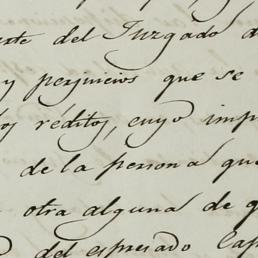 del Juzgado
y perjuicios que se
réditos, cuyo imp
de la persona que
otra alguna de
del espresado Cap